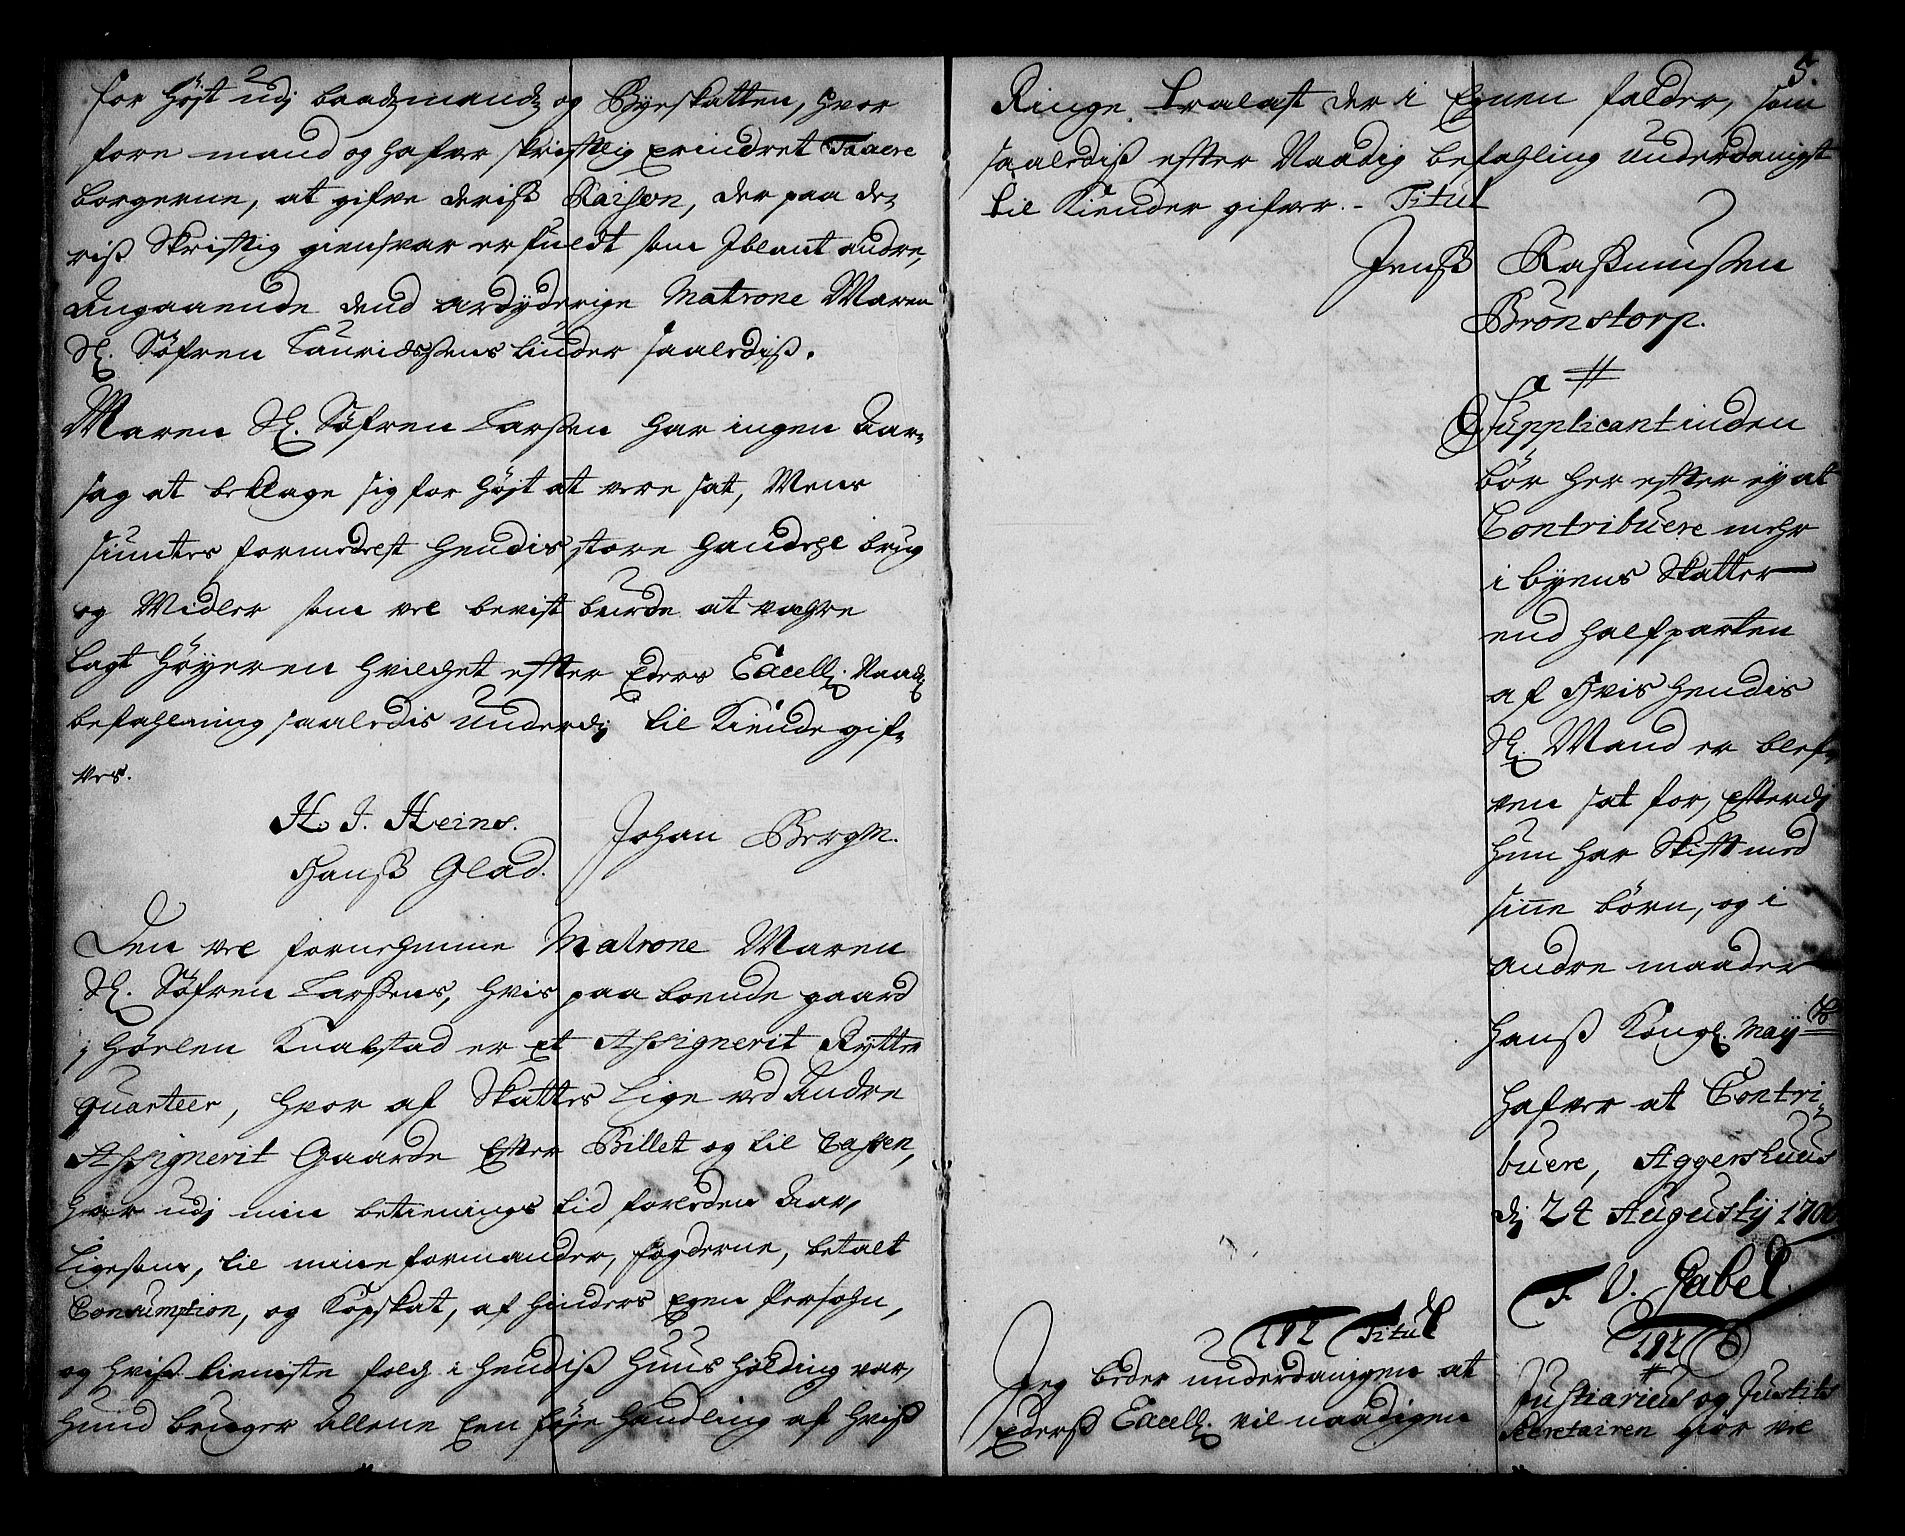 for højt udj baadzmandz og Byeskatten, hvor
fore mand og hafver skriftlig erindret
borgerne, at gifve deriß Raison, der paa de-
riß Skriftlig giensvar erfuldt som Jblant andre,
Angaaende dend ærdyderige Matrone Maren
Sl. Søfren Lauridssens under saalediß.
Maren Sl. Søfren Larssen har ingen Aar-
sag at beklage sig for højt at vere sat, Mens
siuntes formedelst hendis store handel brug
og Midler som vel bevist burde at vahre
lagt høyeren hvilchet efter Eders Excell. Naadz
befahlening saaledis underdj til Kiende gif-
ves.
H. J. Heins.
Johan Bergm.
Hanß Glad.
Den vel fornehmme Matrone Maren
Sl. Søfren Larssens, hvis paa boende gaard
j Hørlen Knabstad er et Assignerit Rytter
quarteer, hvor af Skattes lige ved Andre
Assignerit Gaarde Efter Billet og til Cassen,
har udj min betienings tid forleden Aar,
Ligesom, til mine formænder, fogderne, betalt
Consumption, og Kopskat, af hinders egen Persohn,
og hviß tieniste folch i hendiß Huus holding var,
hund bruger Allene Een føje handling af hviß
5.
Ringe Tralast der i Egnen falder, som
saalediß efter Naadig befahling underdanigst
til Kiender gifver. - Titul
Jenß Raßmussen
Brönstorp.
Supplicantinden
bør her effter ey at
Contribuere mehr
i byens Skatter
end halfparten
af hvis hendis
Sl. Mand er blef-
ven sat for, efterdj
hun har Skift med
sine børn, og i
andre maader
hanß Kongl. May
hafver at Contri-
buere, Aggershuus
dj 24 Augusty 1700
F. V. Gabel.
192
Titul
Jeg beder underdanigen at
Ederß Excell. vil naadigen
192
Justiarius og Justits
Secretairen giør vel